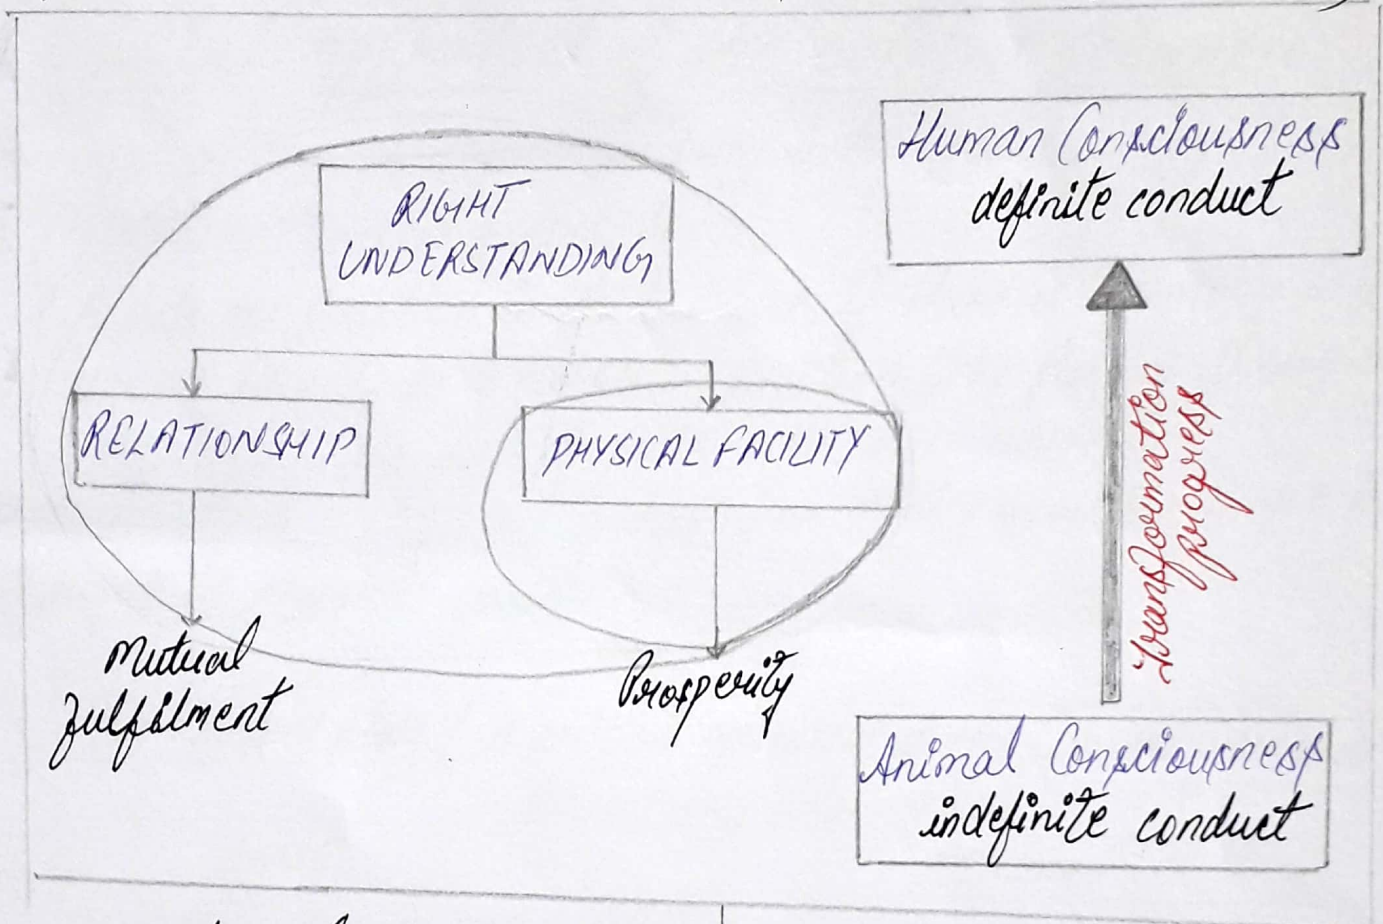 RIGHT
UNDERSTANDING
RELATIONSHIP
PHYSICAL FACILITY
Mutual
fulfilment
Prosperity
Human Consciousness
definite conduct
Transformation
progress
Animal Consciousness
indefinite conduct